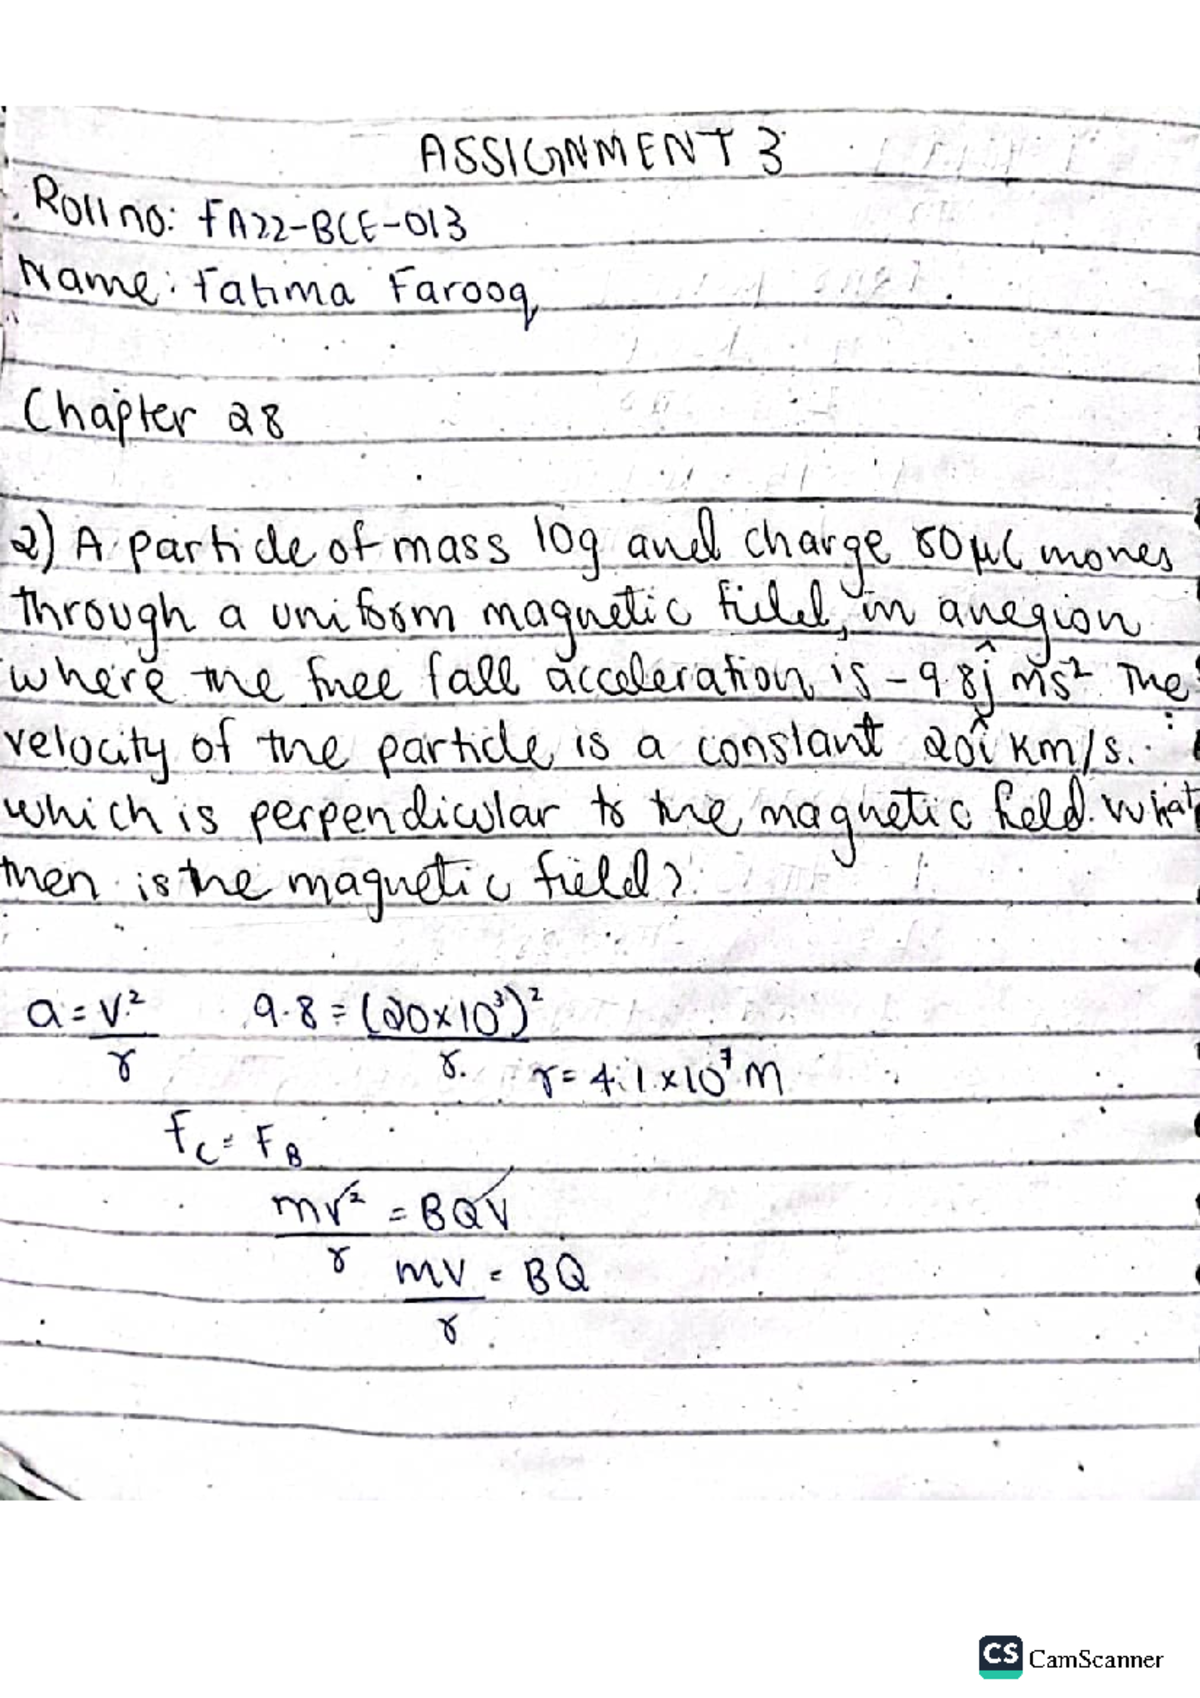 ASSIGNMENT 3
Roll no: FA22-BCE-013
Name: Fatima Farooq
Chapter 28
2) A particle of mass 10g and charge 80μC moves
through a uniform magnetic field, in a region
where the free fall acceleration is -9.8ĵ ms² The
velocity of the particle is a constant 20î km/s.
which is perpendicular to the magnetic field. What
then is the magnetic field?
a = v²/r 9.8 = (20×10³)²/r. r = 4.1×10⁷ m
Fc = FB
mv²/r = BQV
mv/r = BQ
CS CamScanner